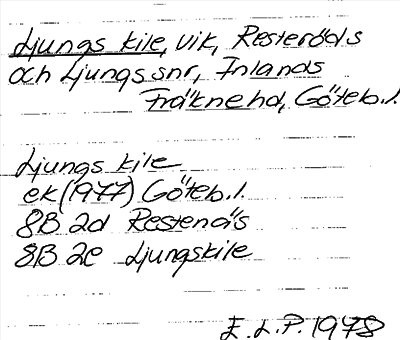 Ljungs kile, vik, Resteröds
och Ljungs snr, Inlands
Fräkne hd, Göteb. l.
Ljungs kile
ek (1977) Göteb. l.
8B 2d Restenäs
8B 2e Ljungskile
E. L. P. 1978